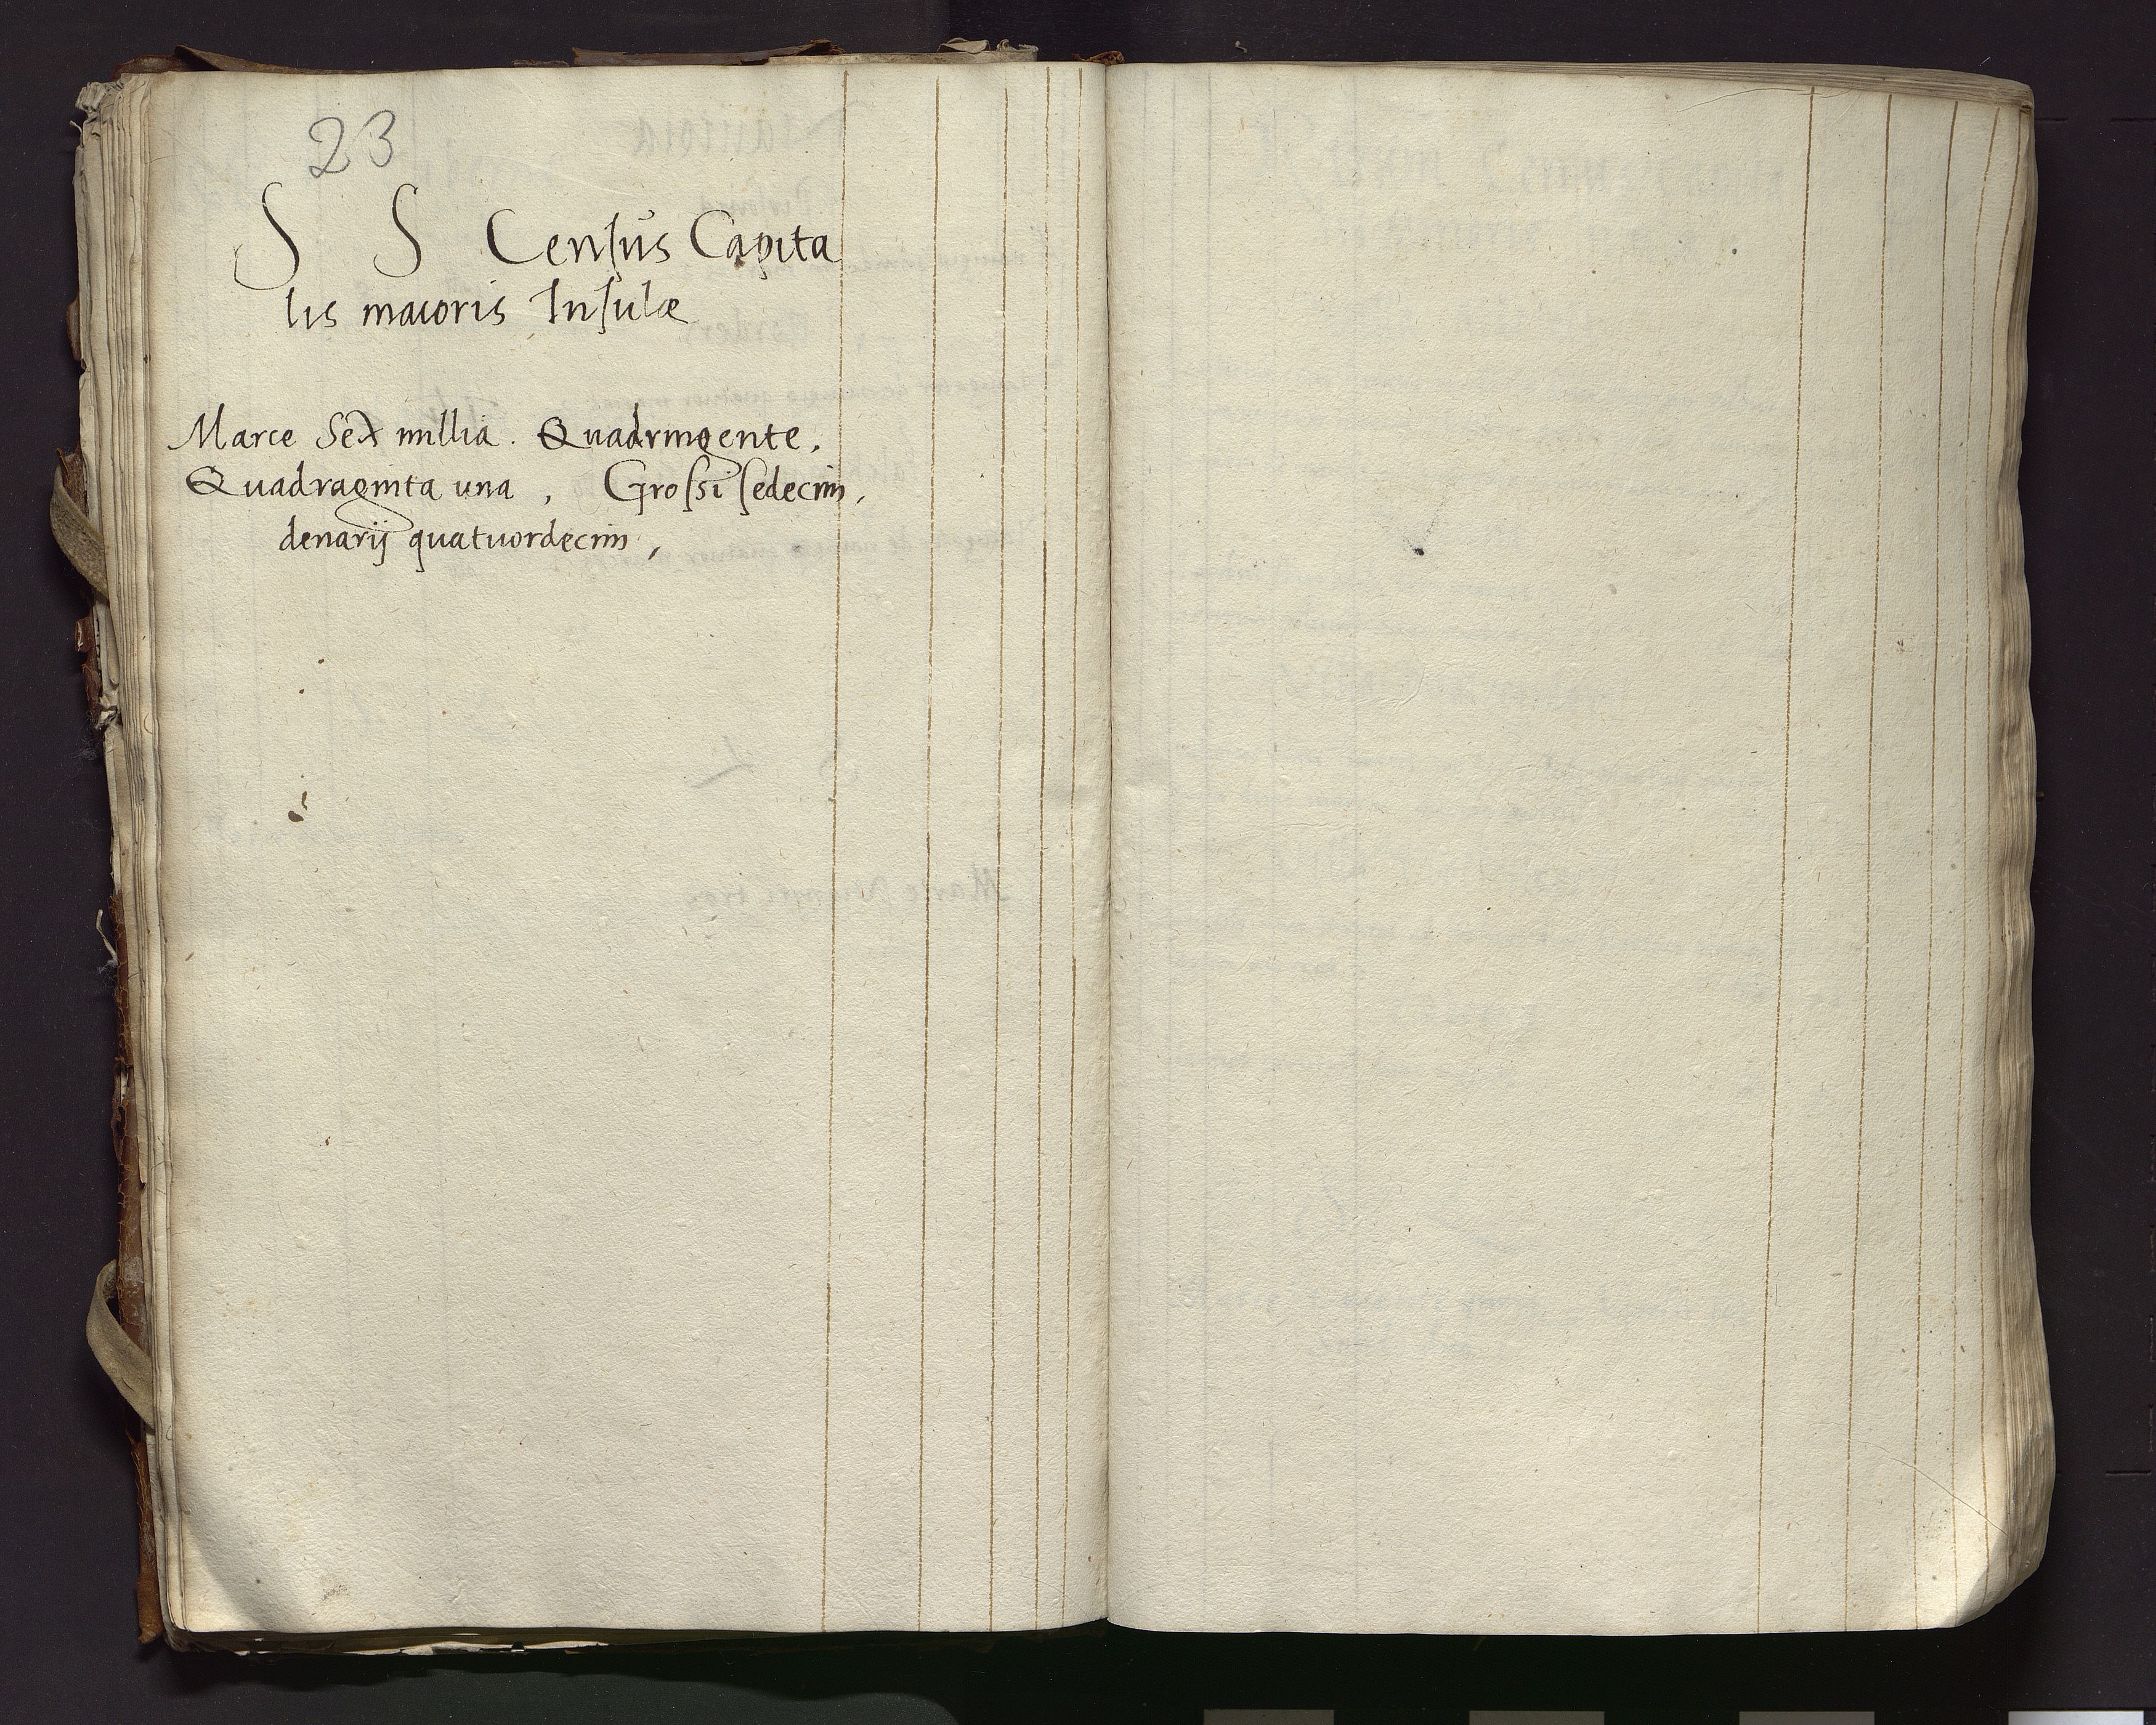 23
S S Censůs Capita
lis maioris Insulæ
Marce Sex millia. Quadringente,
Quadraginta una, Grossi sedecim,
denarij quatuordecim,